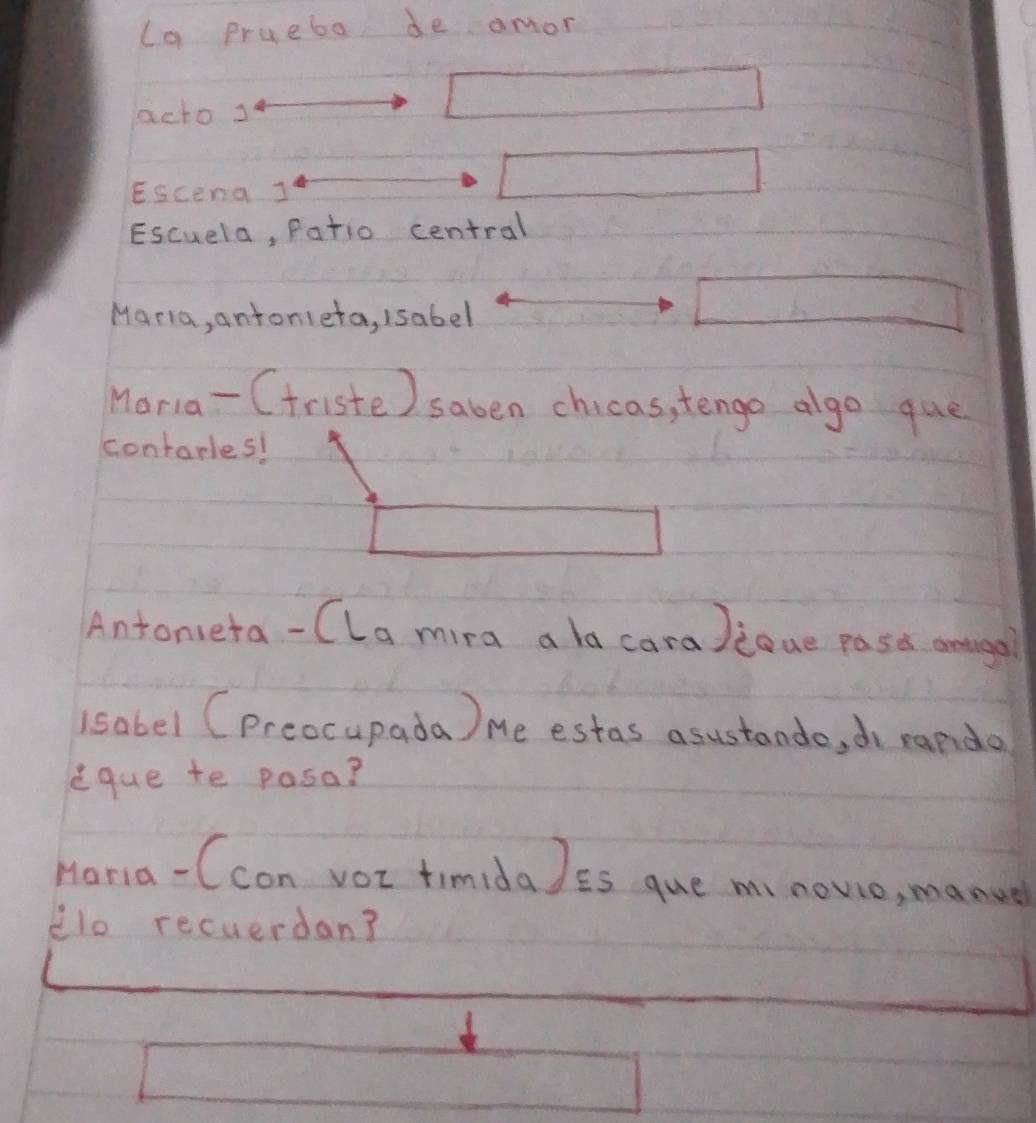 La prueba de amor
acto 1
Escena 1
Escuela, patio central
Maria, antonieta, isabel
Maria - (triste) saben chicas, tengo algo que
contarles!
Antonieta - (La mira a la cara) ¿que pasa amiga?
isabel (preocupada) Me estas asustando, di rapido
¿que te pasa?
Maria - (con voz timida) Es que mi novio, manuel
¿lo recuerdan?